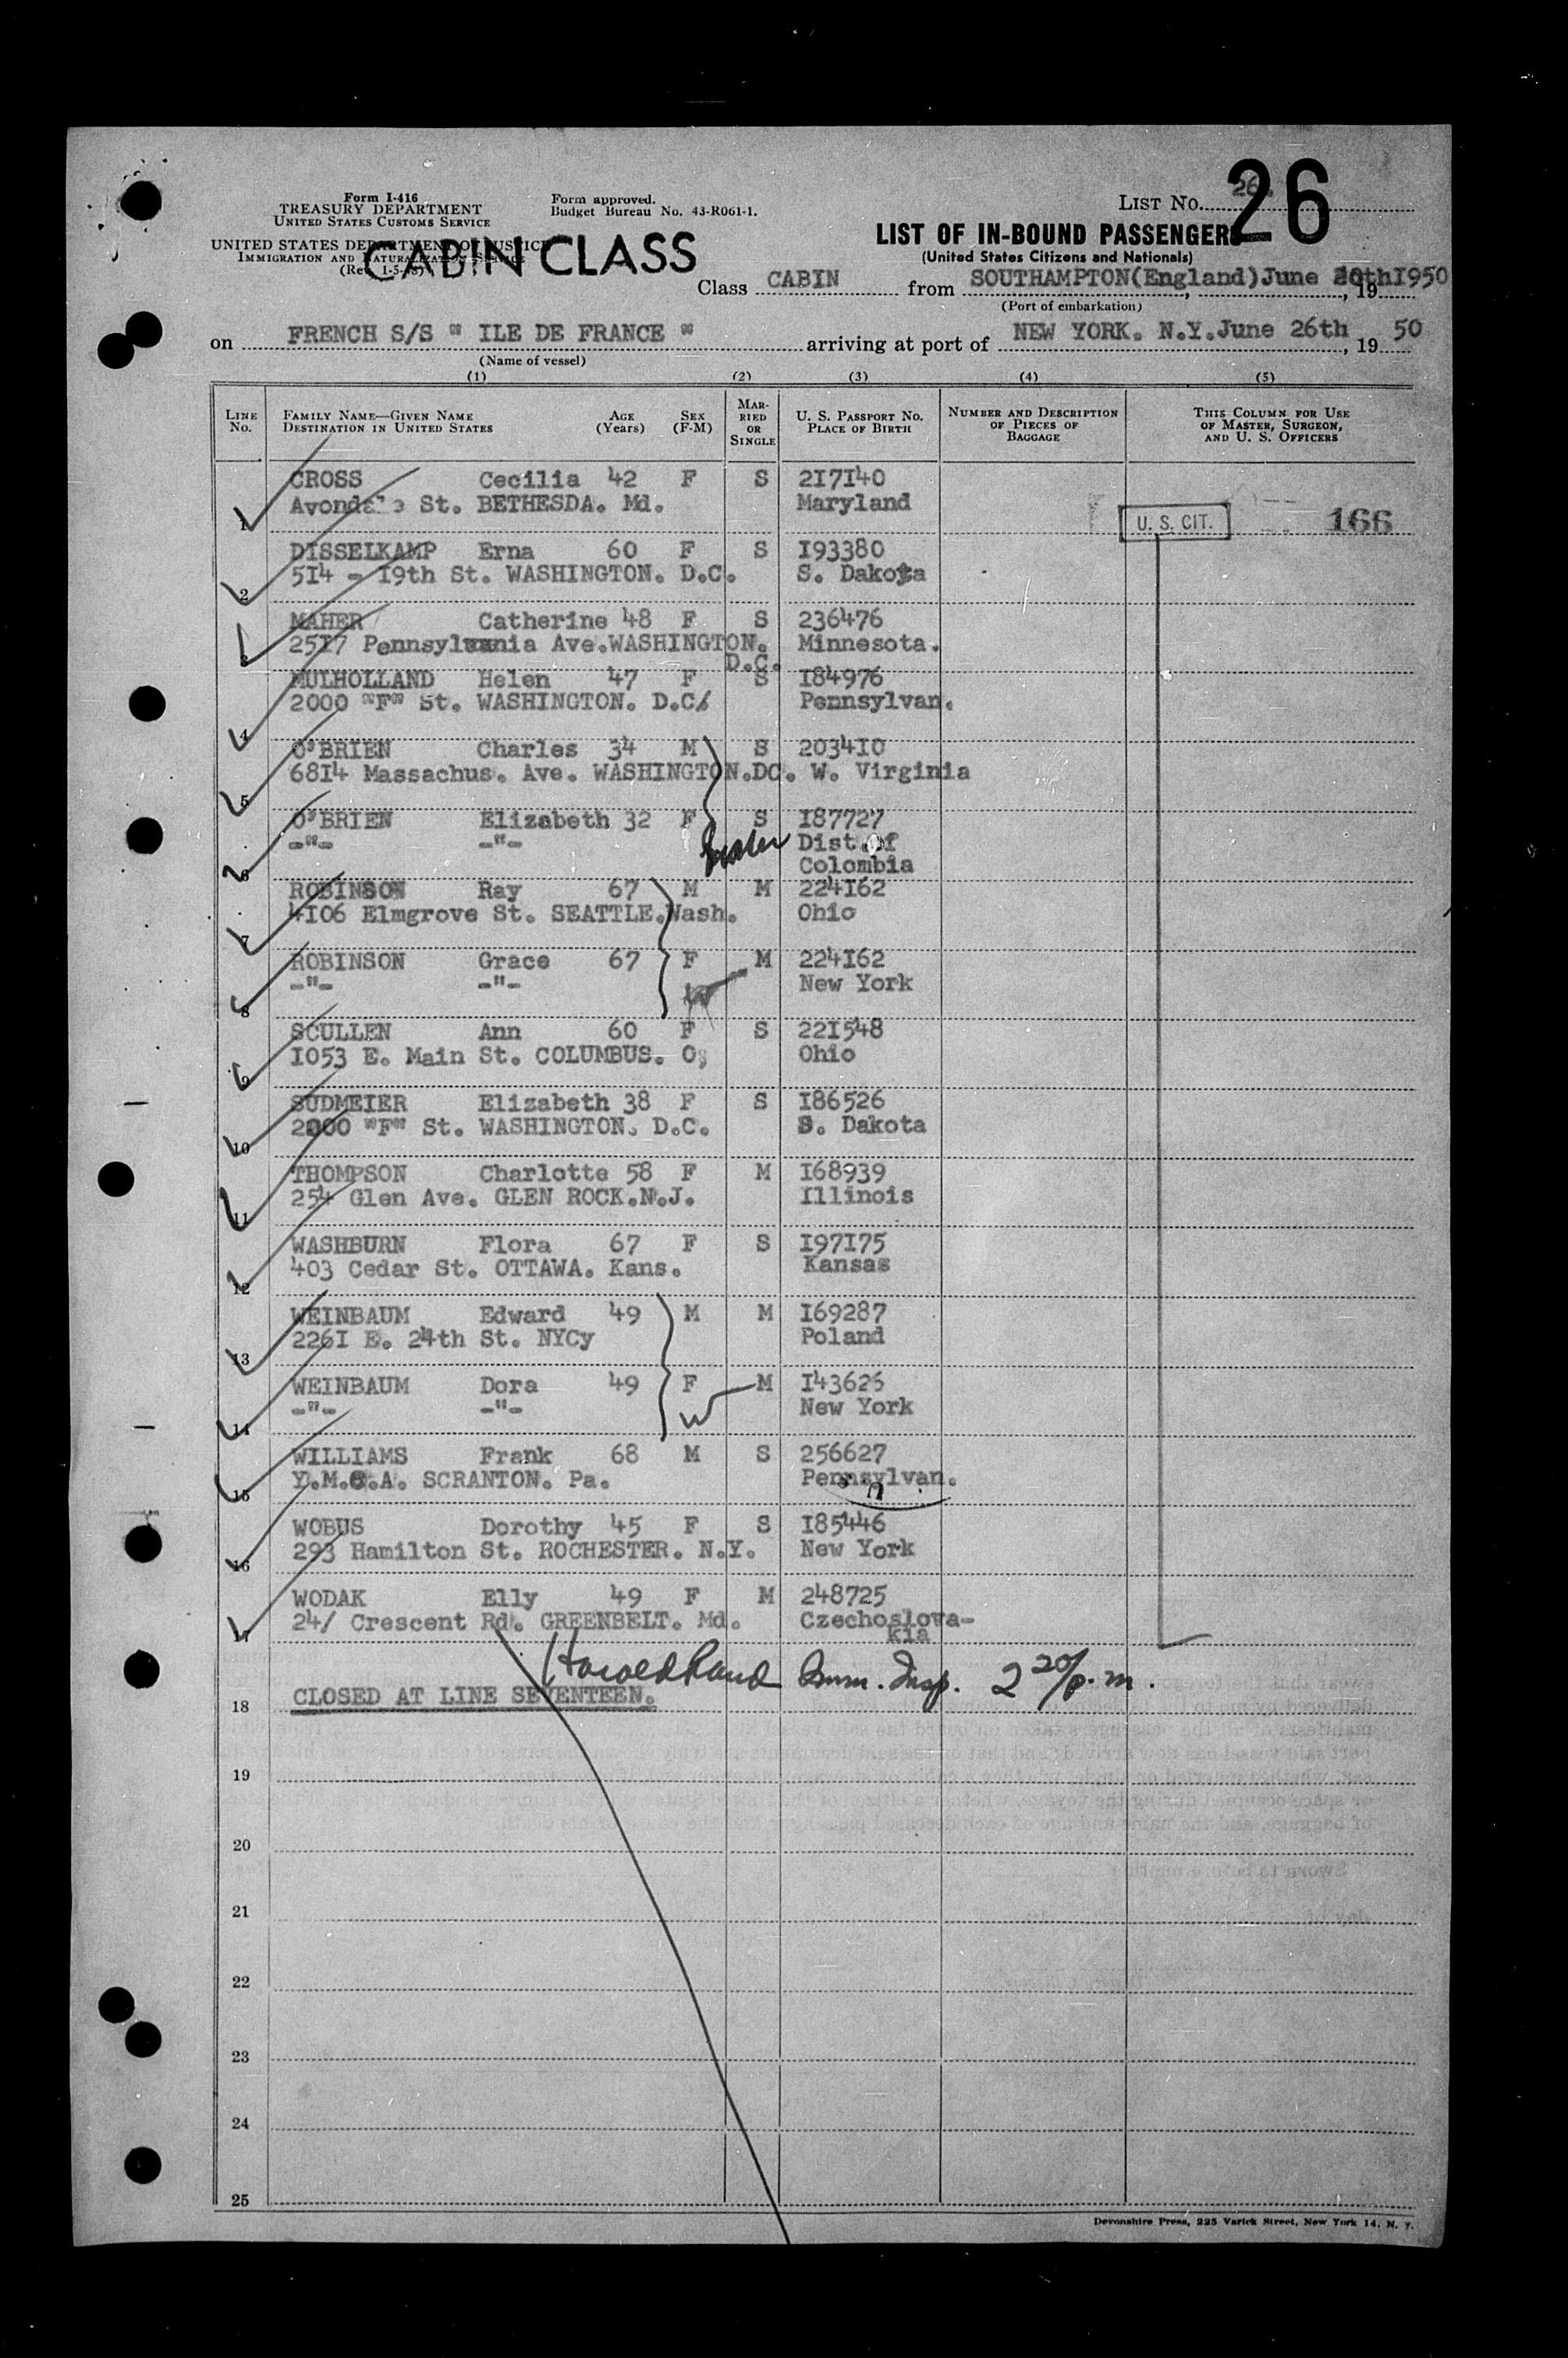 Form I-416
TREASURY DEPARTMENT
UNITED STATES CUSTOMS SERVICE
UNITED STATES DEPARTMENT OF JUSTICE
IMMIGRATION AND NATURALIZATION SERVICE
Form approved.
Budget Bureau No. 43-R061-1.
CABIN CLASS
LIST No. 26
26
LIST OF IN-BOUND PASSENGERS
(United States Citizens and Nationals)
Class CABIN from SOUTHAMPTON(England)June I950
, 19
(Port of embarkation)
on FRENCH S/S " ILE DE FRANCE " arriving at port of NEW YORK. N.Y.June 26th, 19 50
(Name of vessel)
(1) (2) (3) (4) (5)
LINE No. FAMILY NAME—GIVEN NAME DESTINATION IN UNITED STATES AGE (Years) SEX (F-M) MARRIED OR SINGLE U. S. PASSPORT No. PLACE OF BIRTH NUMBER AND DESCRIPTION OF PIECES OF BAGGAGE THIS COLUMN FOR USE OF MASTER, SURGEON, AND U. S. OFFICERS
CROSS Cecilia 42 F S 2I7I40
1 St. BETHESDA. Md. Maryland
U. S. CIT. 166
DISSELKAMP Erna 60 F S I93380
2 5I4 - I9th St. WASHINGTON. D.C. S. Dakota
MAHER Catherine 48 F S 236476
3 25I7 Pennsylvania Ave.WASHINGTON. D.C. Minnesota.
MULHOLLAND Helen 47 F S I84976
4 2000 "F" St. WASHINGTON. D.C. Pennsylvan.
O'BRIEN Charles 34 M S 2034I0
5 68I4 Massachus. Ave. WASHINGTON.DC. W. Virginia
O'BRIEN Elizabeth 32 F S I87727
6 -"- -"- Dist.of
Colombia
ROBINSON Ray 67 M M 224I62
7 4I06 Elmgrove St. SEATTLE.Wash. Ohio
ROBINSON Grace 67 F M 224I62
8 -"- -"- W New York
SCULLEN Ann 60 F S 22I548
9 I053 E. Main St. COLUMBUS. O; Ohio
SUDMEIER Elizabeth 38 F S I86526
10 2000 "F" St. WASHINGTON. D.C. S. Dakota
THOMPSON Charlotte 58 F M I68939
11 254 Glen Ave. GLEN ROCK.N.J. Illinois
WASHBURN Flora 67 F S I97I75
12 403 Cedar St. OTTAWA. Kans. Kansas
WEINBAUM Edward 49 M M I69287
13 226I E. 24th St. NYCy Poland
WEINBAUM Dora 49 F M I43626
14 -"- -"- W New York
WILLIAMS Frank 68 M S 256627
15 Y.M.C.A. SCRANTON. Pa. Pennsylvan.
WOBUS Dorothy 45 F S I85446
16 293 Hamilton St. ROCHESTER. N.Y. New York
WODAK Elly 49 F M 248725
17 24/ Crescent Rd. GREENBELT. Md. Czechoslova-
kia
Harold Rand Imm. Insp. 2 20/p.m.
18 CLOSED AT LINE SEVENTEEN.
19
20
21
22
23
24
25
Devonshire Press, 225 Varick Street, New York 14, N. Y.